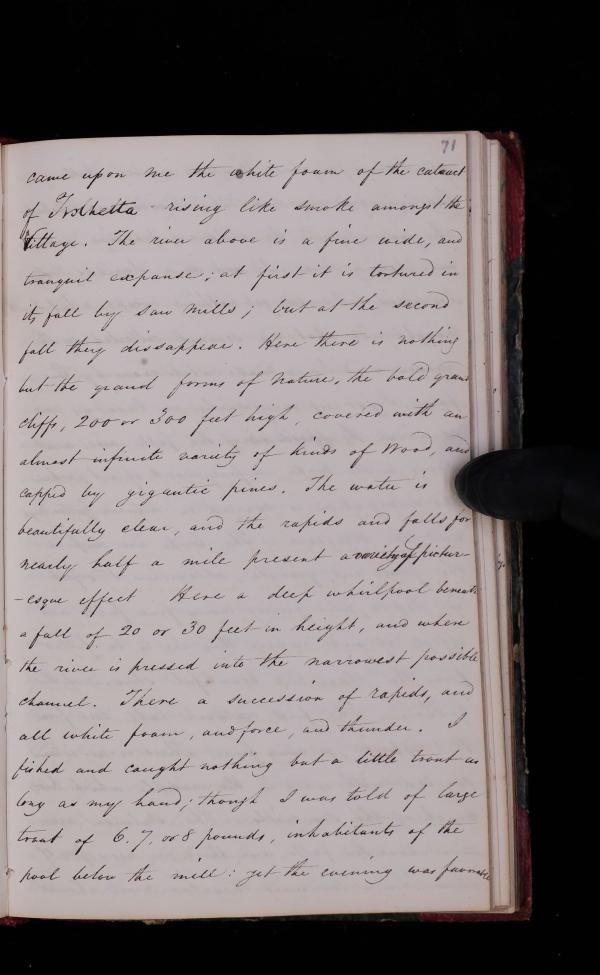 71
came upon me the white foam of the cataract
of Trolhetta rising like smoke amongst the
Village. The river above is a fine wide, and
tranquil expanse; at first it is tortured in
its fall by saw mills; but at the second
fall they dissappear. Here there is nothing
but the grand forms of Nature, the bold grand
cliffs, 200 or 300 feet high, covered with an
almost infinite variety of kinds of Wood, and
capped by gigantic pines. The water is
beautifully clear, and the rapids and falls for
nearly half a mile present a variety of pictur-
-esque effect Here a deep whirlpool beneath
a fall of 20 or 30 feet in height, and where
the river is pressed into the narrowest possible
channel. There a succession of rapids, and
all white foam, and force, and thunder. I
fished and caught nothing but a little trout as
long as my hand; though I was told of large
trout of 6. 7. or 8 pounds, inhabitants of the
pool below the mill: yet the evening was favorable